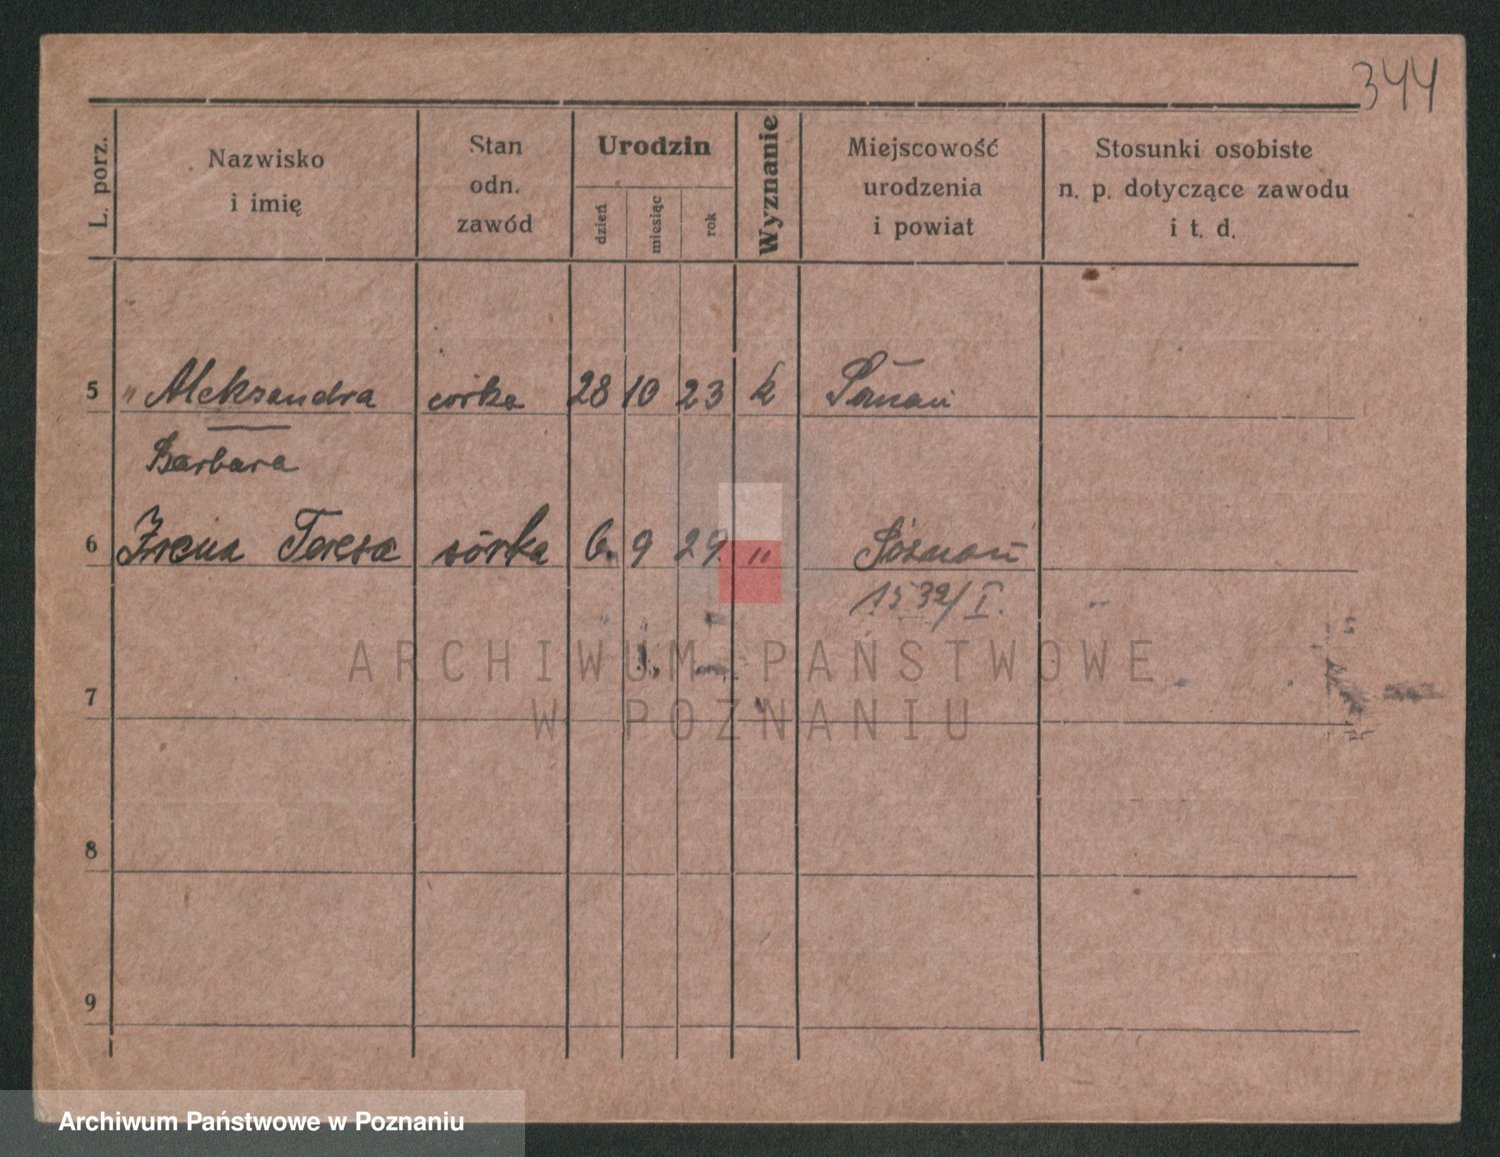 344
L. porz.
Nazwisko
i imię
Stan
odn.
zawód
Urodzin
dzień
miesiąc
rok
Wyznanie
Miejscowość
urodzenia
i powiat
Stosunki osobiste
n. p. dotyczące zawodu
i t. d.
5 " Aleksandra córka 28 10 23 k Poznań
Barbara
6 Irena Teresa córka 6. 9 29. " Poznań
1532/I.
7
8
9
ARCHIWUM PAŃSTWOWE
W POZNANIU
Archiwum Państwowe w Poznaniu